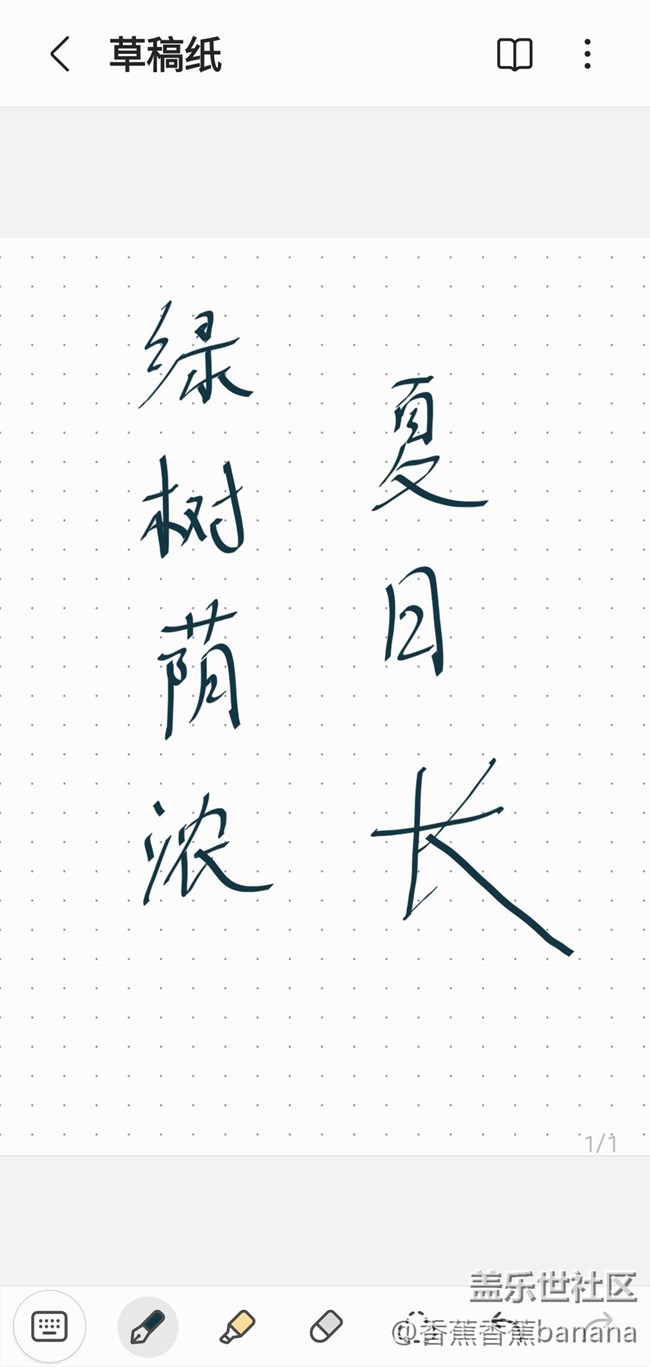 草稿纸
夏日长
绿树荫浓
1/1
盖乐世社区
@香蕉香蕉banana